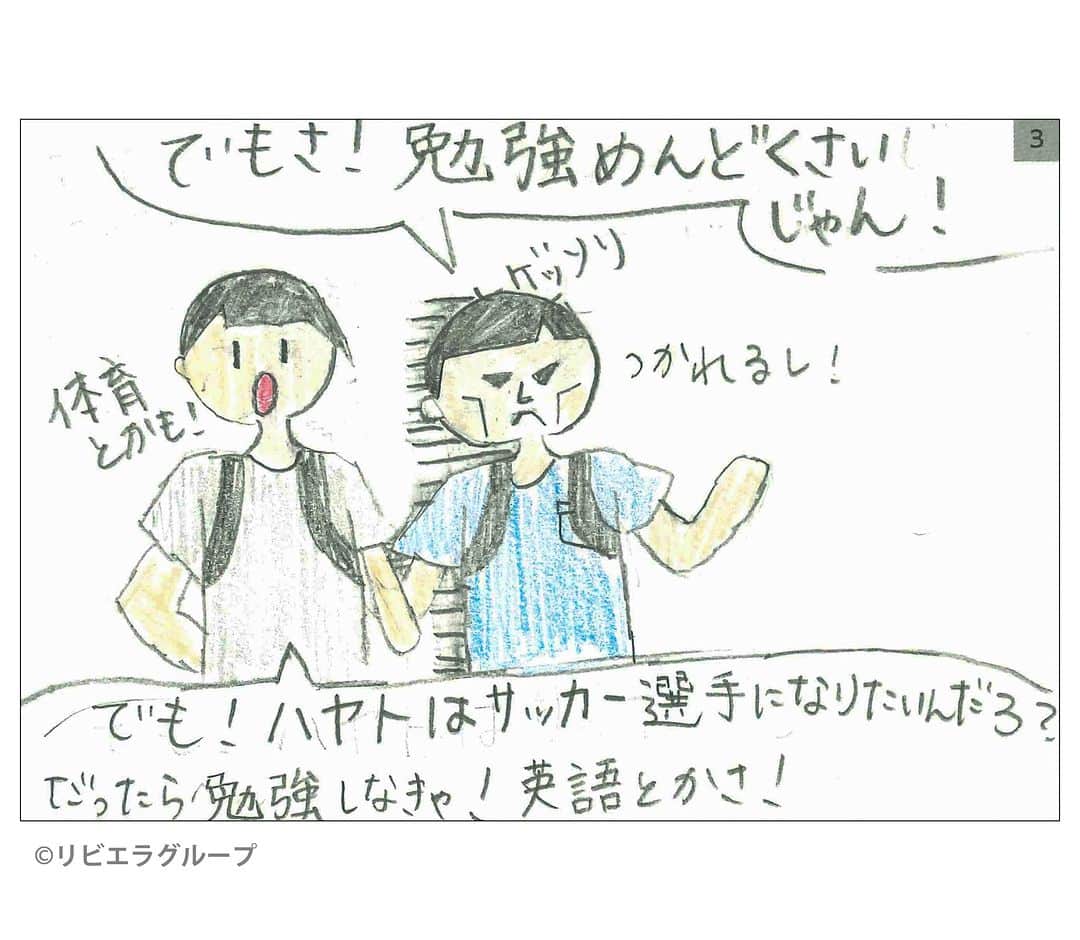 3
でもさ！勉強めんどくさい
じゃん！
ゲッソリ
つかれるし！
体育
とかも！
でも！ハヤトはサッカー選手になりたいんだろ？
だったら勉強しなきゃ！英語とかさ！
©リビエラグループ